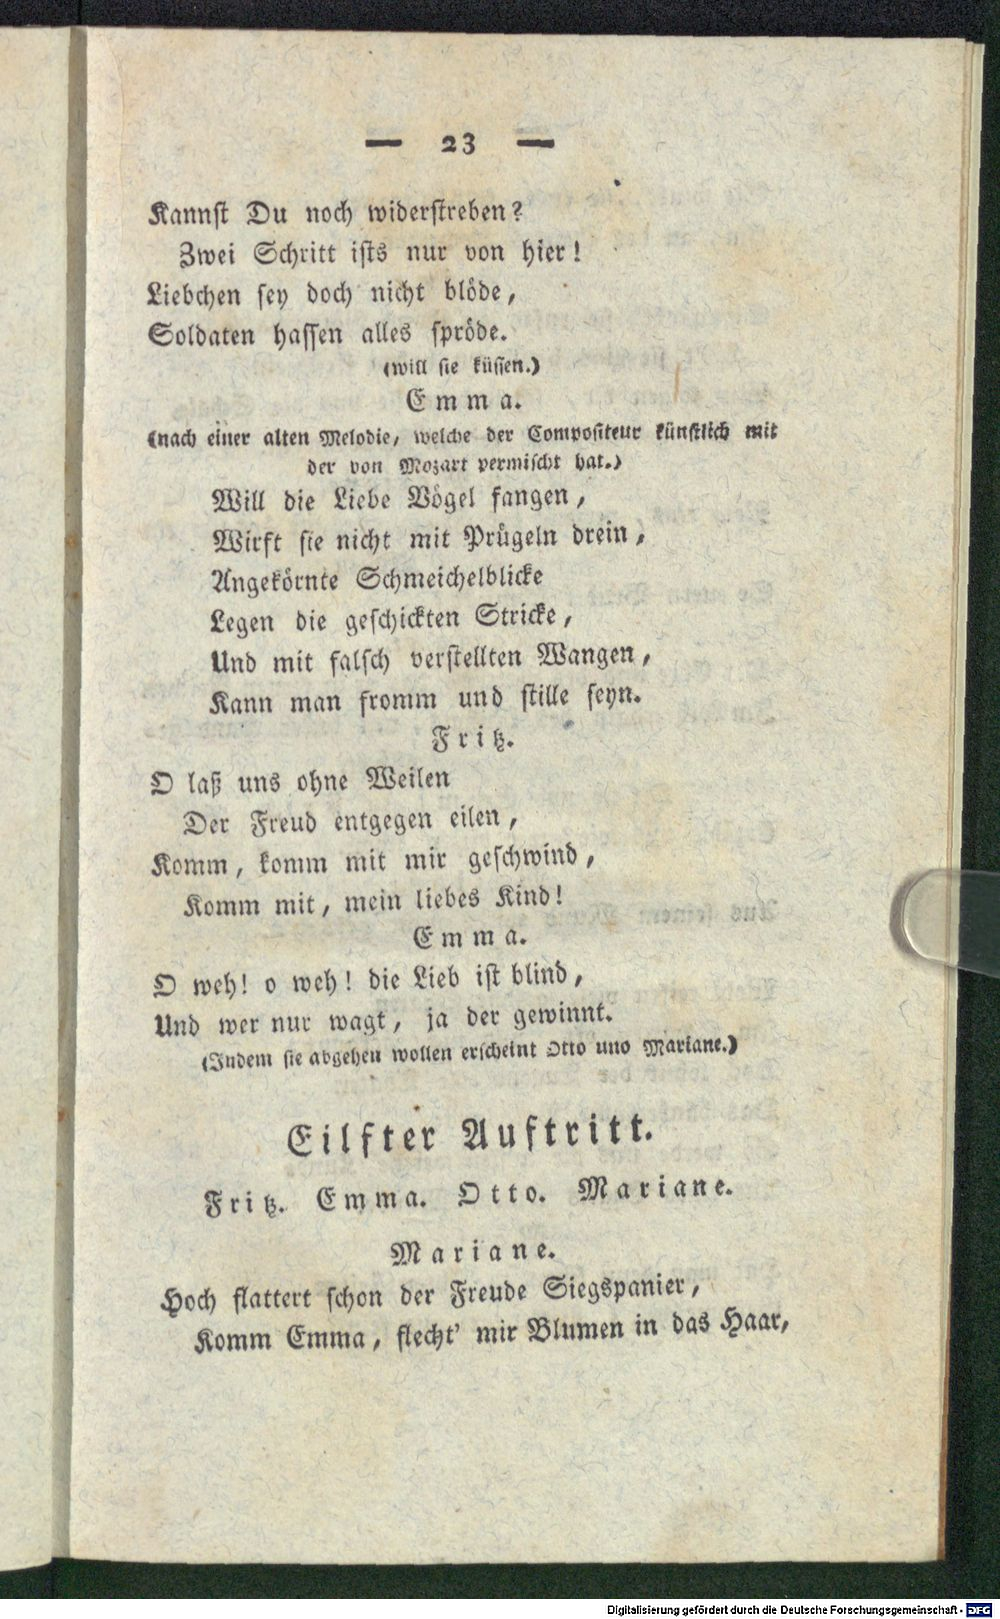 — 23 —
Kannst Du noch widerstreben?
Zwei Schritt ists nur von hier!
Liebchen sey doch nicht blöde,
Soldaten hassen alles spröde.
(will sie küssen.)
Emma.
(nach einer alten Melodie, welche der Compositeur künstlich mit
der von Mozart vermischt hat.)
Will die Liebe Vögel fangen,
Wirft sie nicht mit Prügeln drein,
Angekörnte Schmeichelblicke
Legen die geschickten Stricke,
Und mit falsch verstellten Wangen,
Kann man fromm und stille seyn.
Fritz.
O laß uns ohne Weilen
Der Freud entgegen eilen,
Komm, komm mit mir geschwind,
Komm mit, mein liebes Kind!
Emma.
O weh! o weh! die Lieb ist blind,
Und wer nur wagt, ja der gewinnt.
(Indem sie abgehen wollen erscheint Otto und Mariane.)
Eilfter Auftritt.
Fritz. Emma. Otto. Mariane.
Mariane.
Hoch flattert schon der Freude Siegspanier,
Komm Emma, flecht' mir Blumen in das Haar,
Digitalisierung gefördert durch die Deutsche Forschungsgemeinschaft - DFG